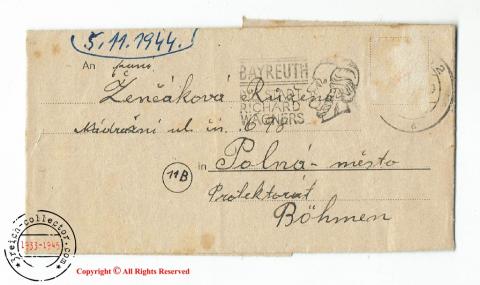 5.11.1944.
An paní
BAYREUTH
RICHARD
WAGNERS
Ženčáková Růžena
Nádražní ul. čís. 698
11B
in Polná-město
Protektorát
Böhmen
3reich-collector.com
1933-1945
Copyright © All Rights Reserved